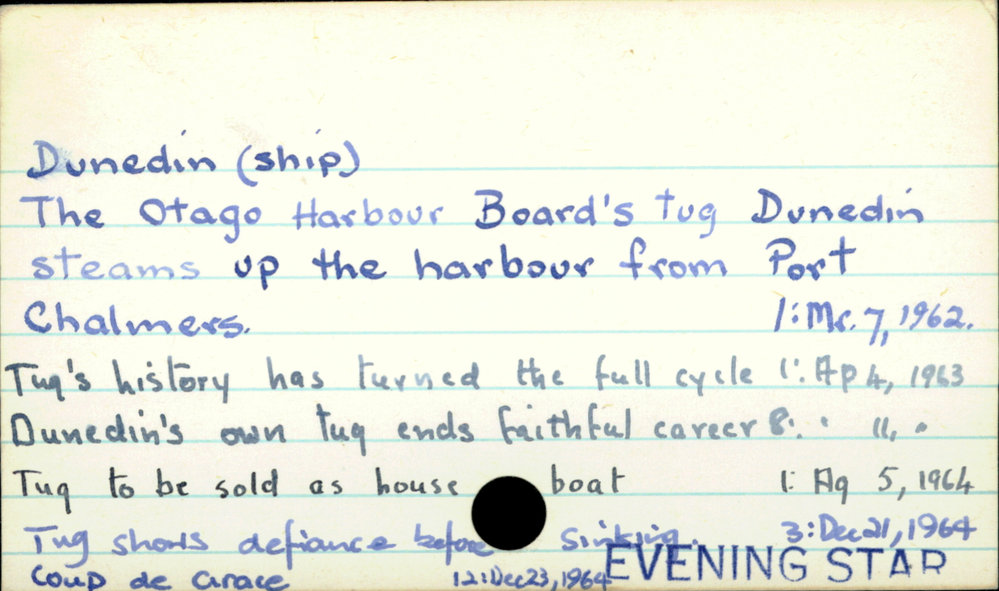 Dunedin (ship)
The Otago Harbour Board's tug Dunedin
steams up the harbour from Port
Chalmers. 1:Mr. 7, 1962.
Tug's history has turned the full cycle 1:Ap 4, 1963
Dunedin's own tug ends faithful career 8: " 11, "
Tug to be sold as house boat 1: Ag 5, 1964
Tug shows defiance before sinking. 3:Dec 21, 1964
Coup de Grace 12:Dec 23, 1964 EVENING STAR